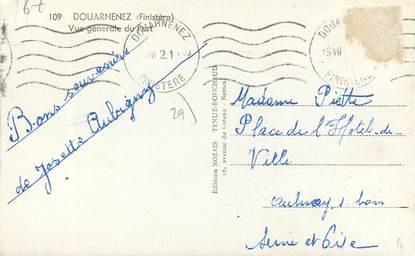 6-t
109 DOUARNENEZ (Finistère)
Vue générale du Port
DOUARNENEZ
2.1
FINISTERE
DOUA
15 VII
FINISTERE
Bons souvenirs
de Josette Aubigny
29
Editions NOZAIS
Nantes
Madame Piette
Place de l'Hotel-de-
Ville
Aulnay s. bois
Seine et Oise